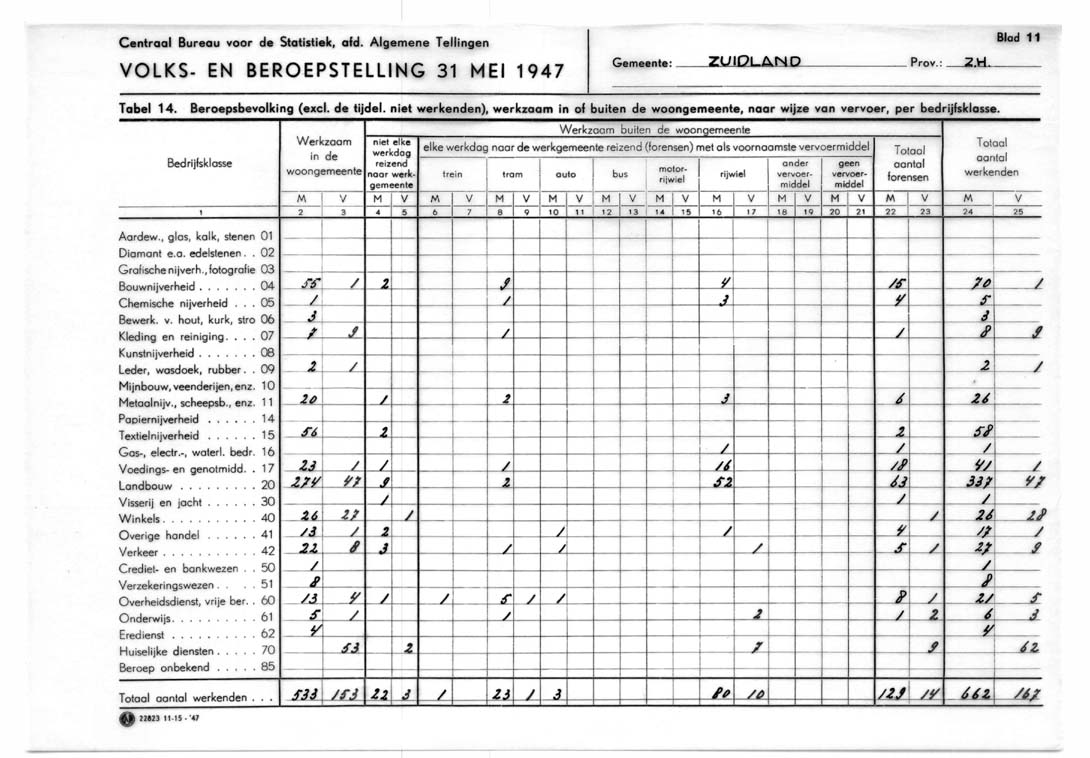 Centraal Bureau voor de Statistiek, afd. Algemene Tellingen
VOLKS- EN BEROEPSTELLING 31 MEI 1947
Blad 11
Gemeente: ZUIDLAND Prov.: Z.H.
Tabel 14. Beroepsbevolking (excl. de tijdel. niet werkenden), werkzaam in of buiten de woongemeente, naar wijze van vervoer, per bedrijfsklasse.
Bedrijfsklasse
Werkzaam in de woongemeente
Werkzaam buiten de woongemeente
niet elke werkdag reizend naar werk-gemeente
elke werkdag naar de werkgemeente reizend (forensen) met als voornaamste vervoermiddel
trein tram auto bus motor-rijwiel rijwiel ander vervoer-middel geen vervoer-middel
Totaal aantal forensen
Totaal aantal werkenden
M V M V M V M V M V M V M V M V M V M V M V M V
1 2 3 4 5 6 7 8 9 10 11 12 13 14 15 16 17 18 19 20 21 22 23 24 25
Aardew., glas, kalk, stenen 01
Diamant e.a. edelstenen . . 02
Grafische nijverh., fotografie 03
Bouwnijverheid . . . . . . . 04 55 1 2 9 4 15 70 1
Chemische nijverheid . . . 05 1 1 3 4 5
Bewerk. v. hout, kurk, stro 06 3 3
Kleding en reiniging. . . . 07 7 9 1 1 8 9
Kunstnijverheid . . . . . . . 08
Leder, wasdoek, rubber. . 09 2 1 2 1
Mijnbouw, veenderijen, enz. 10
Metaalnijv., scheepsb., enz. 11 20 1 2 3 6 26
Papiernijverheid . . . . . . 14
Textielnijverheid . . . . . . 15 56 2 2 58
Gas-, electr.-, waterl. bedr. 16 1 1 1
Voedings- en genotmidd. . 17 23 1 1 1 16 18 41 1
Landbouw . . . . . . . . . 20 274 47 9 2 52 63 337 47
Visserij en jacht . . . . . . 30 1 1 1
Winkels . . . . . . . . . . . 40 26 27 1 1 26 28
Overige handel . . . . . . 41 13 1 2 1 1 4 17 1
Verkeer . . . . . . . . . . . 42 22 8 3 1 1 1 5 1 27 9
Crediet- en bankwezen . . 50 1 1
Verzekeringswezen . . . . 51 8 8
Overheidsdienst, vrije ber. . 60 13 4 1 1 5 1 1 8 1 21 5
Onderwijs. . . . . . . . . . 61 5 1 1 2 1 2 6 3
Eredienst . . . . . . . . . . 62 4 4
Huiselijke diensten . . . . . 70 53 2 7 9 62
Beroep onbekend . . . . . 85
Totaal aantal werkenden . . . 533 153 22 3 1 23 1 3 80 10 129 14 662 167
22823 11-15 - '47